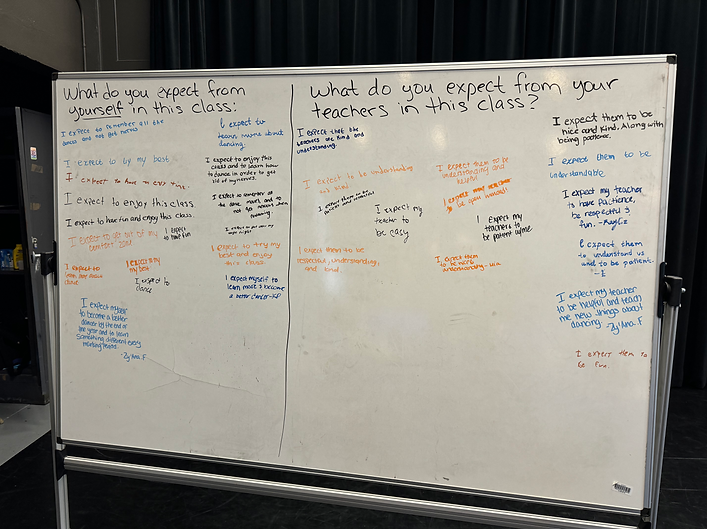 What do you expect from
yourself in this class:
I expect to remember all the
dances and not get nervous
I expect to
learn more about
dancing.
I expect to try my best
I expect to have an epic time.
I expect to enjoy this
class and to learn how
to dance in order to get
rid of my nerves.
I expect to enjoy this class
I expect to remember all
the dance moves and to
not get nervous when
I expect to have fun and enjoy this class.
I expect to get out of my
comfort zone
I expect to
have fun
I expect to try my
best and enjoy
this class.
I expect to
I expect to try
my best
I expect to
dance
I expect myself to
learn more & become
a better dancer
I expect myself
to become a better
dancer by the end of
the year and to learn
something different every
marking period.
-Zy'Ana. F
What do you expect from your
teachers in this class?
I expect that the
teachers are kind and
understanding.
I expect them to be
nice and kind. Along with
being patience.
I expect to be understanding
and kind
I expect them to be
understanding and
helpful
I expect them to be
understandable
I expect my teacher
to be
I expect my
teacher to
be easy
I expect my
teachers to
be patient w/ me
I expect my teacher
to have patience,
be respectful &
fun.
I expect them to be
respectful, understanding,
and kind.
I expect them
to be more
understanding.
I expect them
to understand us
and to be patient.
- E
I expect my teacher
to be helpful and teach
me new things about
dancing -Zy'Ana. F
I expect them to
be fun.